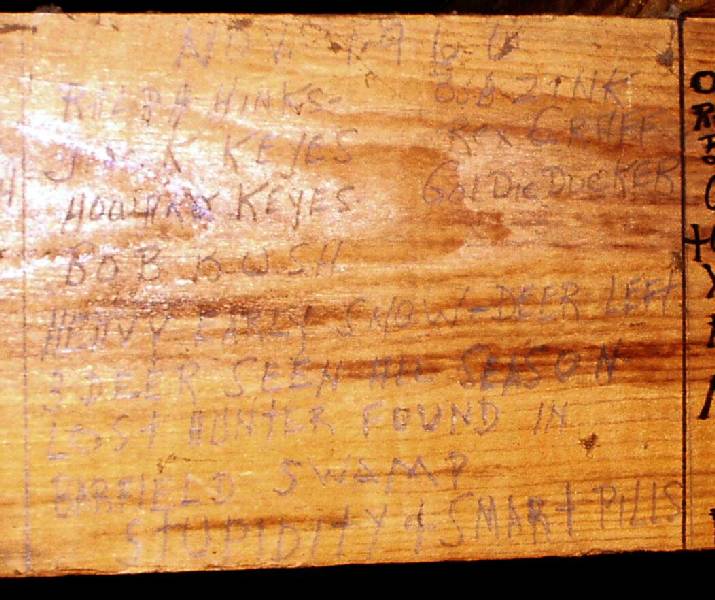 NOV. 1966
RALPH HINKS- BOB ZINK
JACK KEYES REX
HOWARD KEYES GOLDIE DUCKER
BOB BUSH
HEAVY EARLY SNOW-DEER LEFT
3 DEER SEEN ALL SEASON
LOST HUNTER FOUND IN
BARFIELD SWAMP
STUPIDITY & SMART PILLS